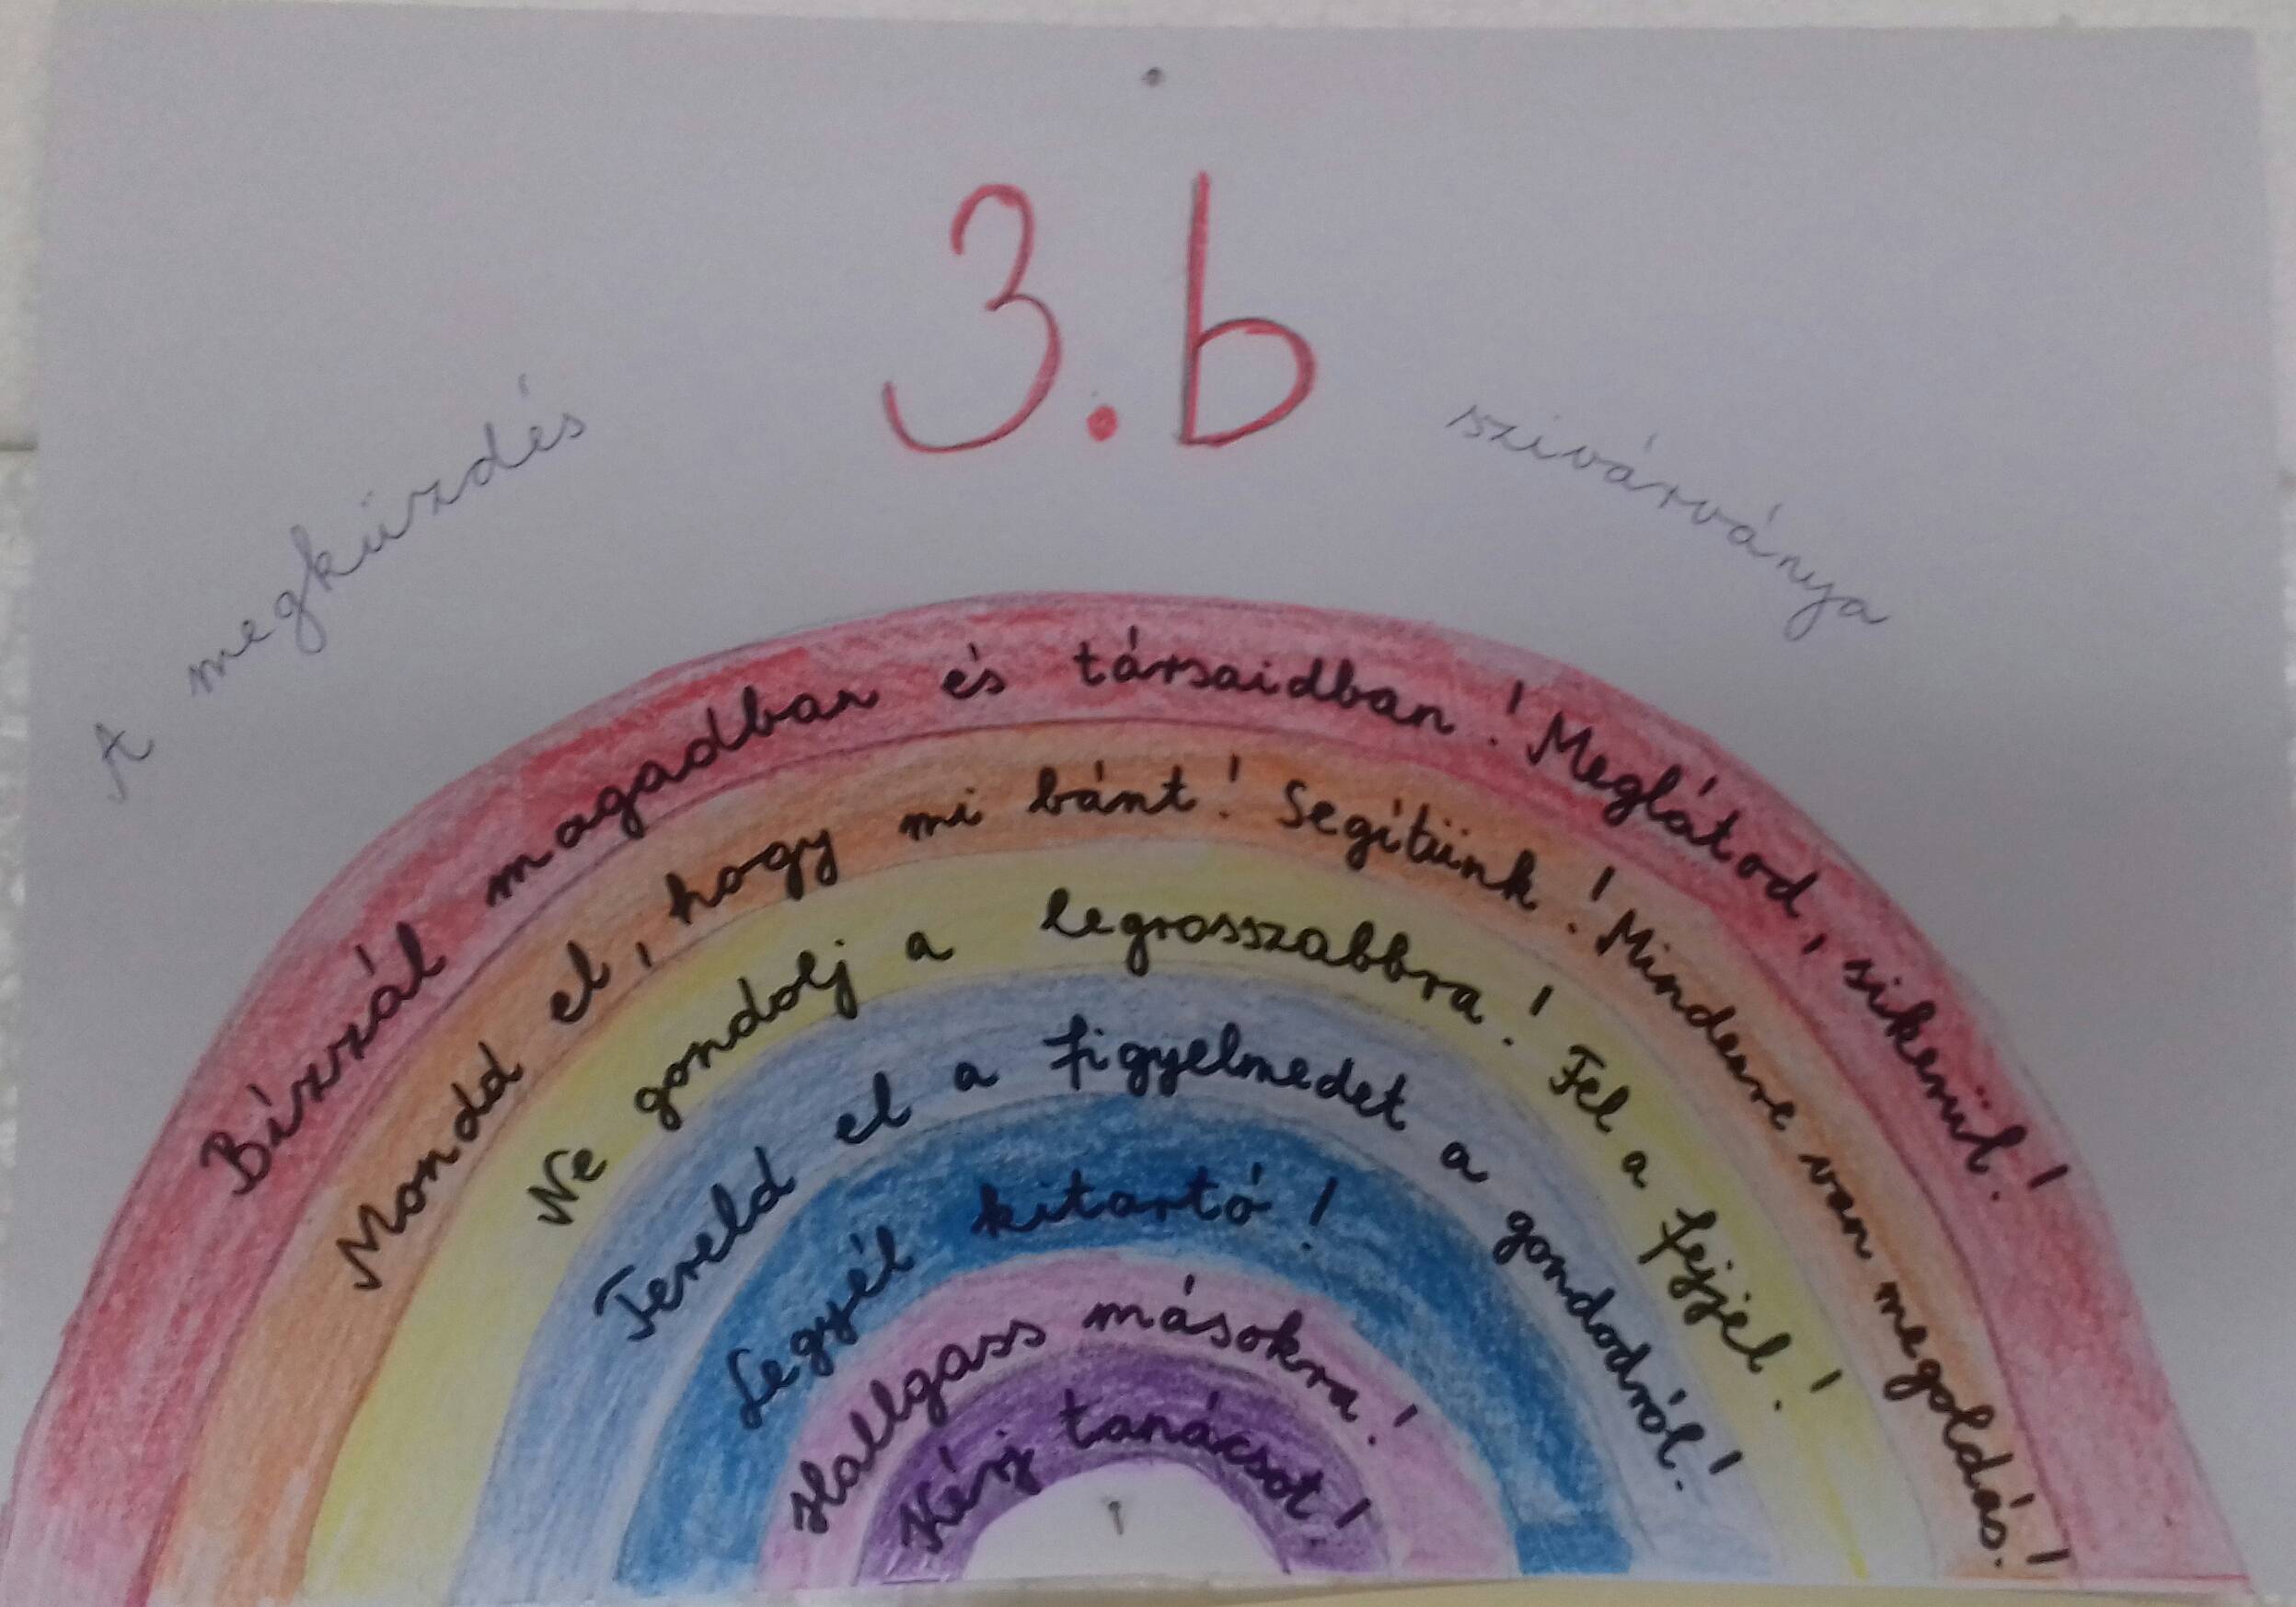 3.b
A megküzdés szivárványa
Bízzál magadban és társaidban! Meglátod, sikerül!
Mondd el, hogy mi bánt! Segítünk! Mindenre van megoldás!
Ne gondolj a legrosszabbra! Fel a fejjel!
Tereld el a figyelmedet a gondodról!
Legyél kitartó!
Hallgass másokra!
Kérj tanácsot!